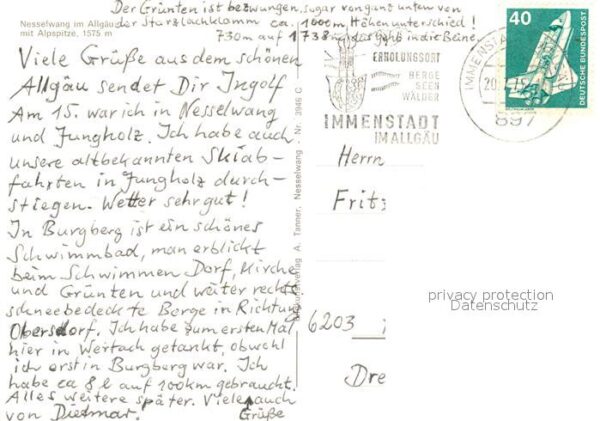 Der Grünten ist bezwungen, sogar von ganz unten von
Nesselwang im Allgäu
mit Alpspitze, 1575 m
der Starzlachklamm ca. 1000m Höhenunterschied!
730m auf 1738m, das geht in die Beine
Viele Grüße aus dem schönen
Allgäu sendet Dir Ingolf
Am 15. war ich in Nesselwang
und Jungholz. Ich habe auch
unsere altbekannten Skiab-
fahrten in Jungholz durch-
stiegen. Wetter sehr gut!
In Burgberg ist ein schönes
Schwimmbad, man erblickt
beim Schwimmen Dorf, Kirche
und Grünten und weiter rechts
schneebedeckte Berge in Richtung
Oberstdorf. Ich habe zum ersten Mal
hier in Wertach getankt, obwohl
ich erst in Burgberg war. Ich
habe ca 8 l auf 100km gebraucht.
Alles weitere später. Viele auch
von Dietmar. Grüße
A. Tanner, Nesselwang - Nr. 3946 C
ERHOLUNGSORT
BERGE
SEEN
WÄLDER
IMMENSTADT
IM ALLGÄU
IMMENSTA
20.
897
40
DEUTSCHE BUNDESPOST
Herrn
Fritz
6203
Dre
privacy protection
Datenschutz